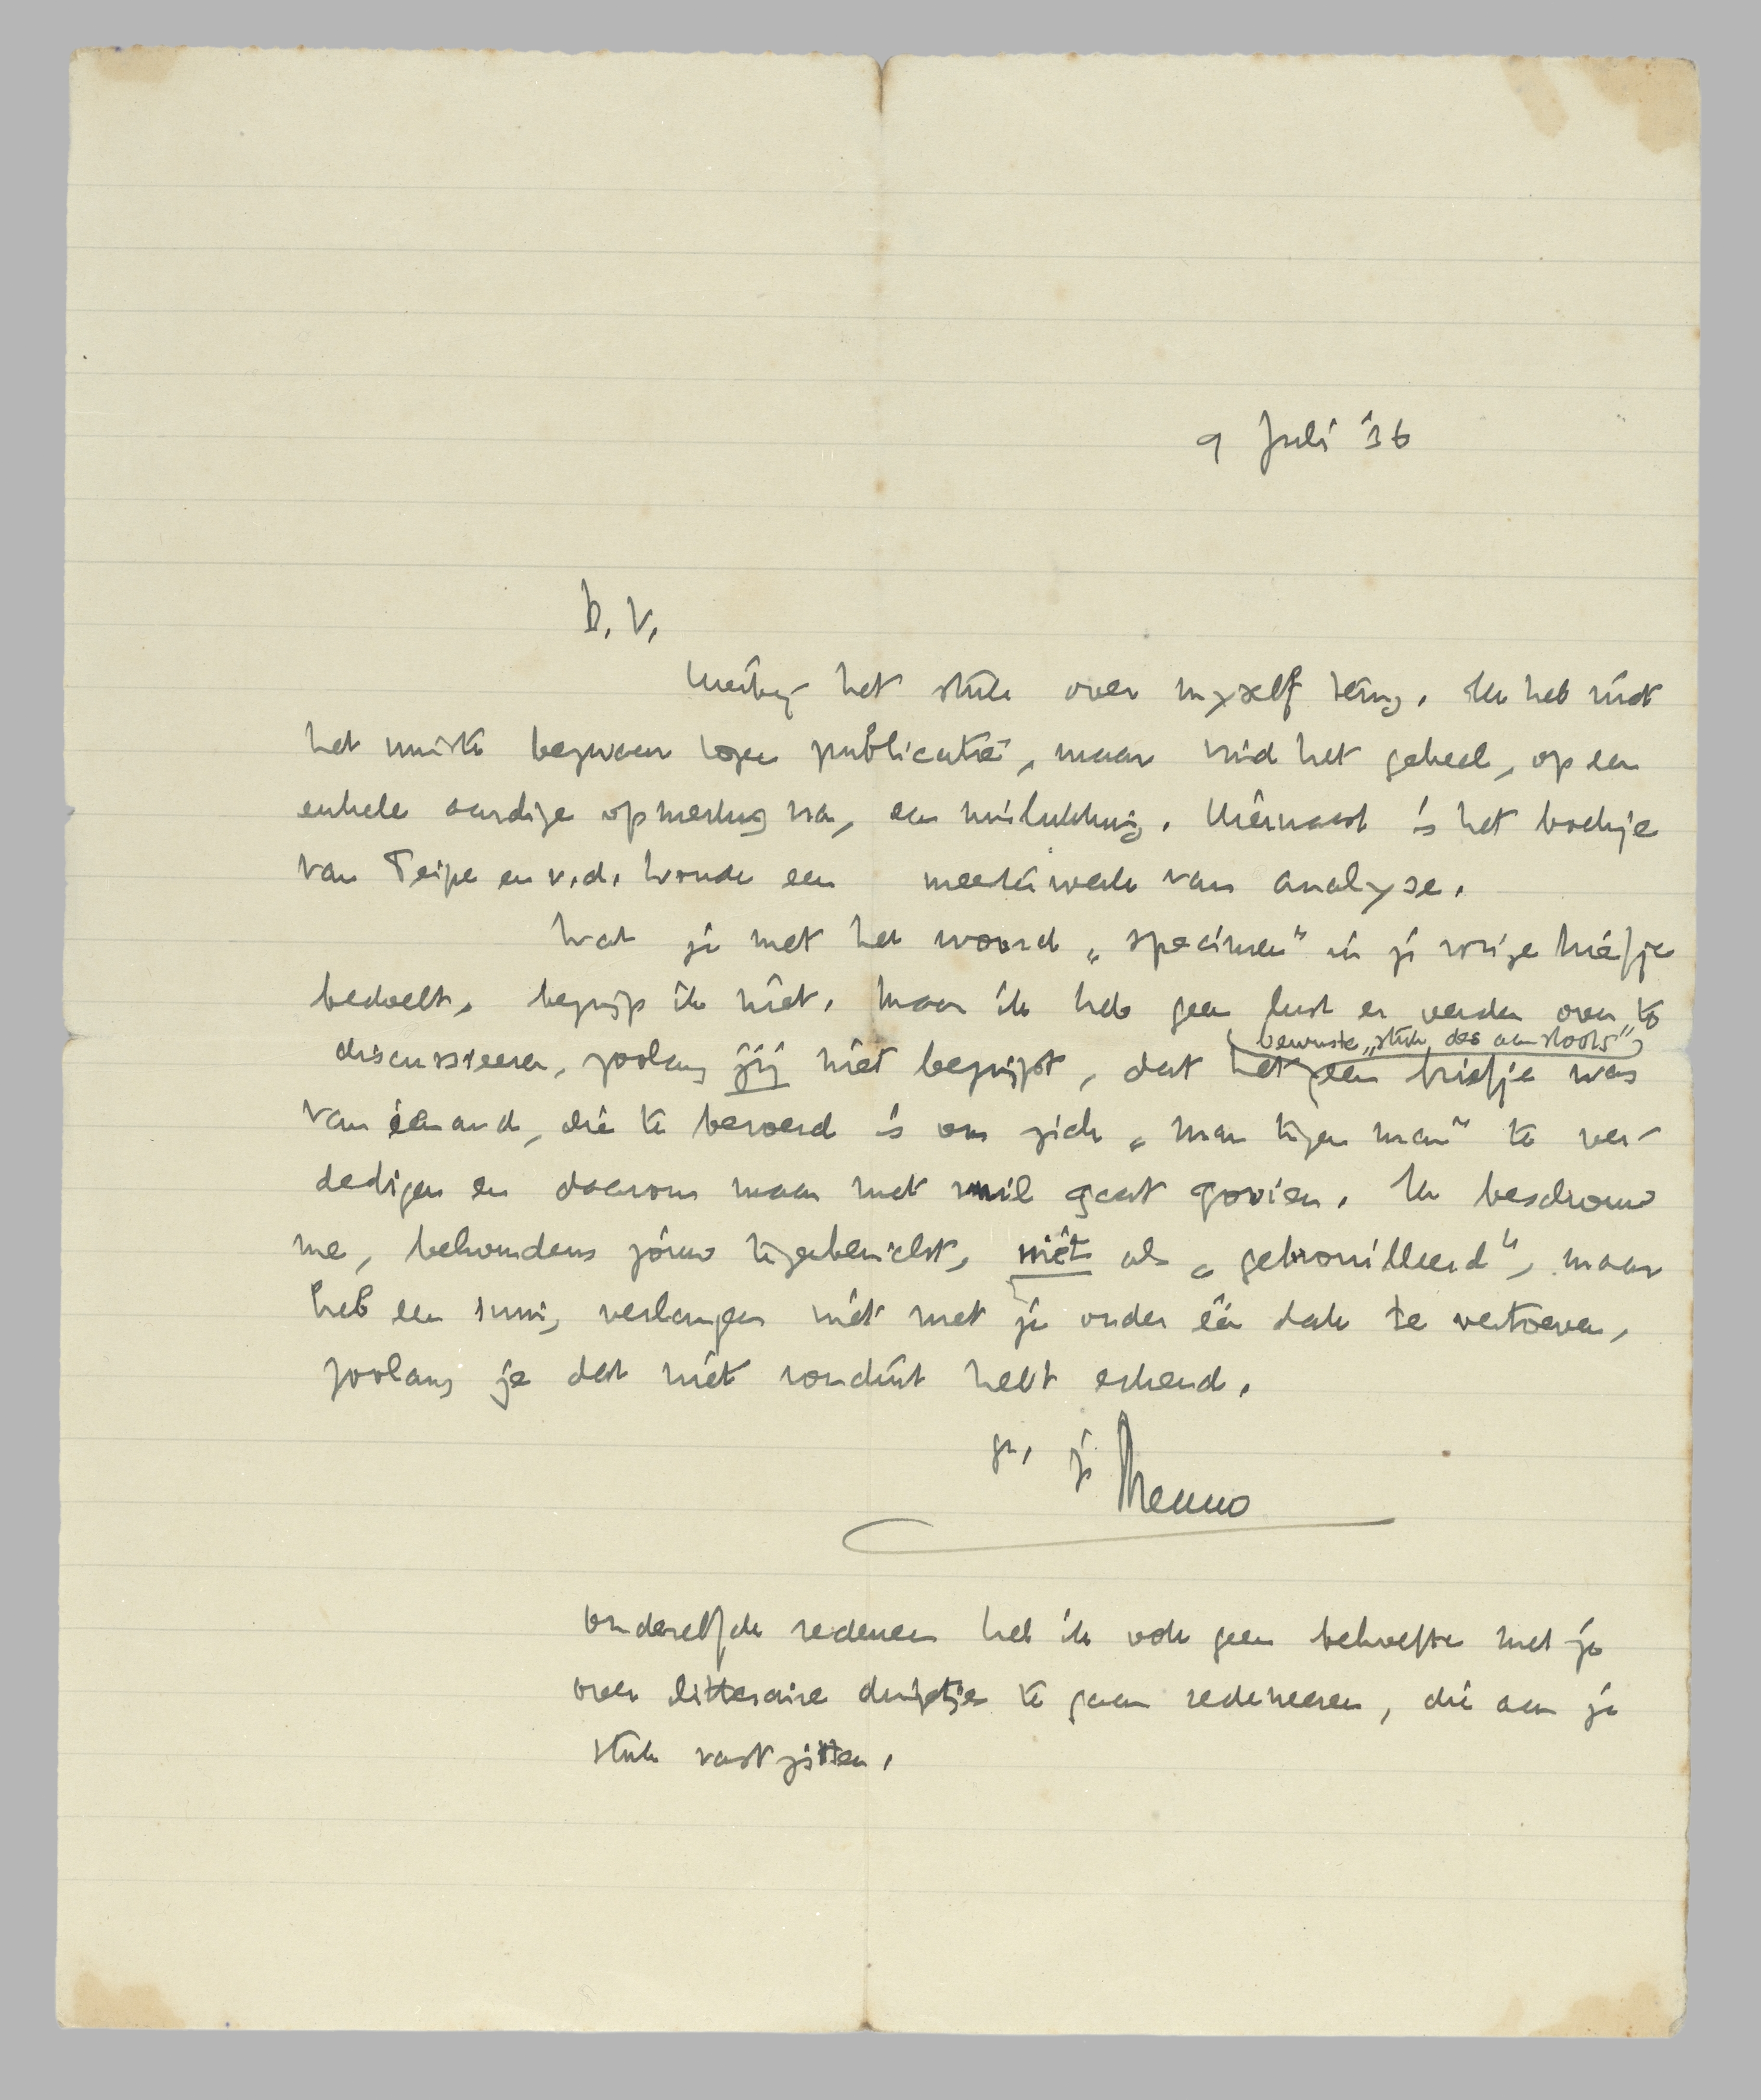 9 Juli '36
B. V.
Hierbij het stuk over myself terug. Ik heb niet
het minste bezwaar tegen publicatie, maar vind het geheel, op een
enkele aardige opmerking na, een mislukking. Hiernaast is het boekje
van Teipe en v.d. Woude een meesterwerk van analyse.
Wat je met het woord „specimen" in je vorige briefje
bedoelt, begrijp ik niet. Maar ik heb geen lust er verder over te
discussieeren, zoolang jij niet begrijpt, dat het geen briefje was
bewuste „stuk des aanstoots"
van iemand, die te beroerd is om zich „man tegen man" te ver-
dedigen en daarom maar met vuil gaat gooien. Ik beschouw
me, behoudens jouw tegenbericht, niet als „gebrouilleerd", maar
heb een innig verlangen niet met je onder één dak te vertoeven,
zoolang je dat niet ronduit hebt erkend.
gr. je Menno
Om dezelfde redenen heb ik ook geen behoefte met je
over litteraire dingetjes te gaan redeneeren, die aan je
stuk vastzitten.